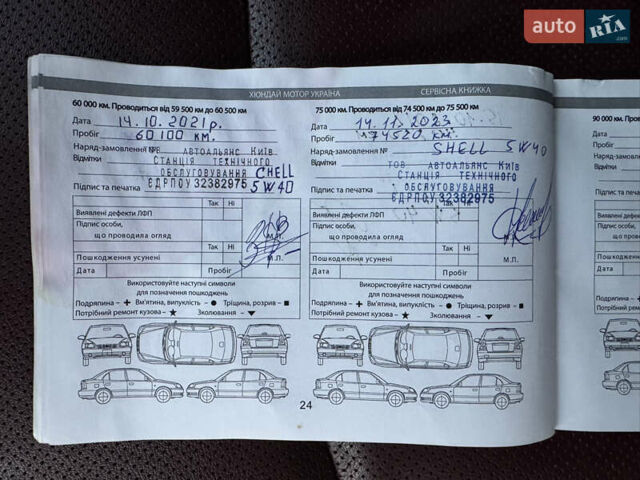 auto RIA.com
ХЮНДАЙ МОТОР УКРАЇНА
СЕРВІСНА КНИЖКА
60 000 км. Проводиться від 59 500 км до 60 500 км
Дата 14.10.2021р.
Пробіг 60 100 км.
Наряд-замовлення № АВТОАЛЬЯНС КИЇВ
Відмітки СТАНЦІЯ ТЕХНІЧНОГО
ОБСЛУГОВУВАННЯ CHELL
Підпис та печатка ЄДРПОУ 32382975 5W40
Так Ні
Виявлені дефекти ЛФП
Підпис особи,
що проводила огляд
Так Ні
Пошкодження усунені М.П.
Дата Пробіг
Використовуйте наступні символи
для позначення пошкоджень
Подряпина – + Вм'ятина, випуклість – ● Тріщина, розрив – ■
Потрібний ремонт кузова – ★ Зколювання – ▼
75 000 км. Проводиться від 74 500 км до 75 500 км
Дата 14.11.2023
Пробіг 74520 км.
Наряд-замовлення № SHELL 5W40
Відмітки ТОВ АВТОАЛЬЯНС КИЇВ
СТАНЦІЯ ТЕХНІЧНОГО
ОБСЛУГОВУВАННЯ
Підпис та печатка ЄДРПОУ 32382975
Так Ні
Виявлені дефекти ЛФП
Підпис особи,
що проводила огляд
Так Ні
Пошкодження усунені М.П.
Дата Пробіг
Використовуйте наступні символи
для позначення пошкоджень
Подряпина – + Вм'ятина, випуклість – ● Тріщина, розрив – ■
Потрібний ремонт кузова – ★ Зколювання – ▼
24
90 000 км. Про
Дата
Пробіг
Наряд-замов
Відмітки
Підпис та п
Виявлені д
Підпис ос
що
Пошкод
Дата
Подряп
Потріб